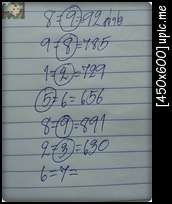 8-9=92ต่าง
9-8=785
1-2=729
5-6=656
8-9=891
2-3=630
6=7=
[450x600] upic.me